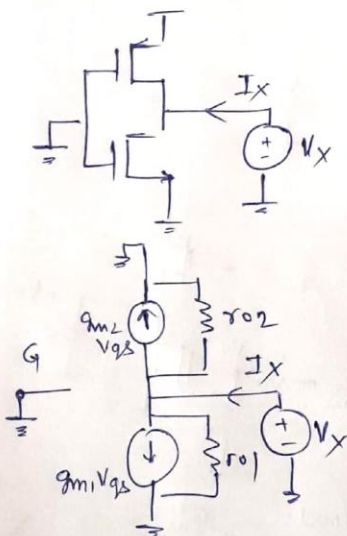 I_X
+
-
V_X
g_m2
V_gs
r_o2
G
I_X
+
-
V_X
g_m1 V_gs
r_o1